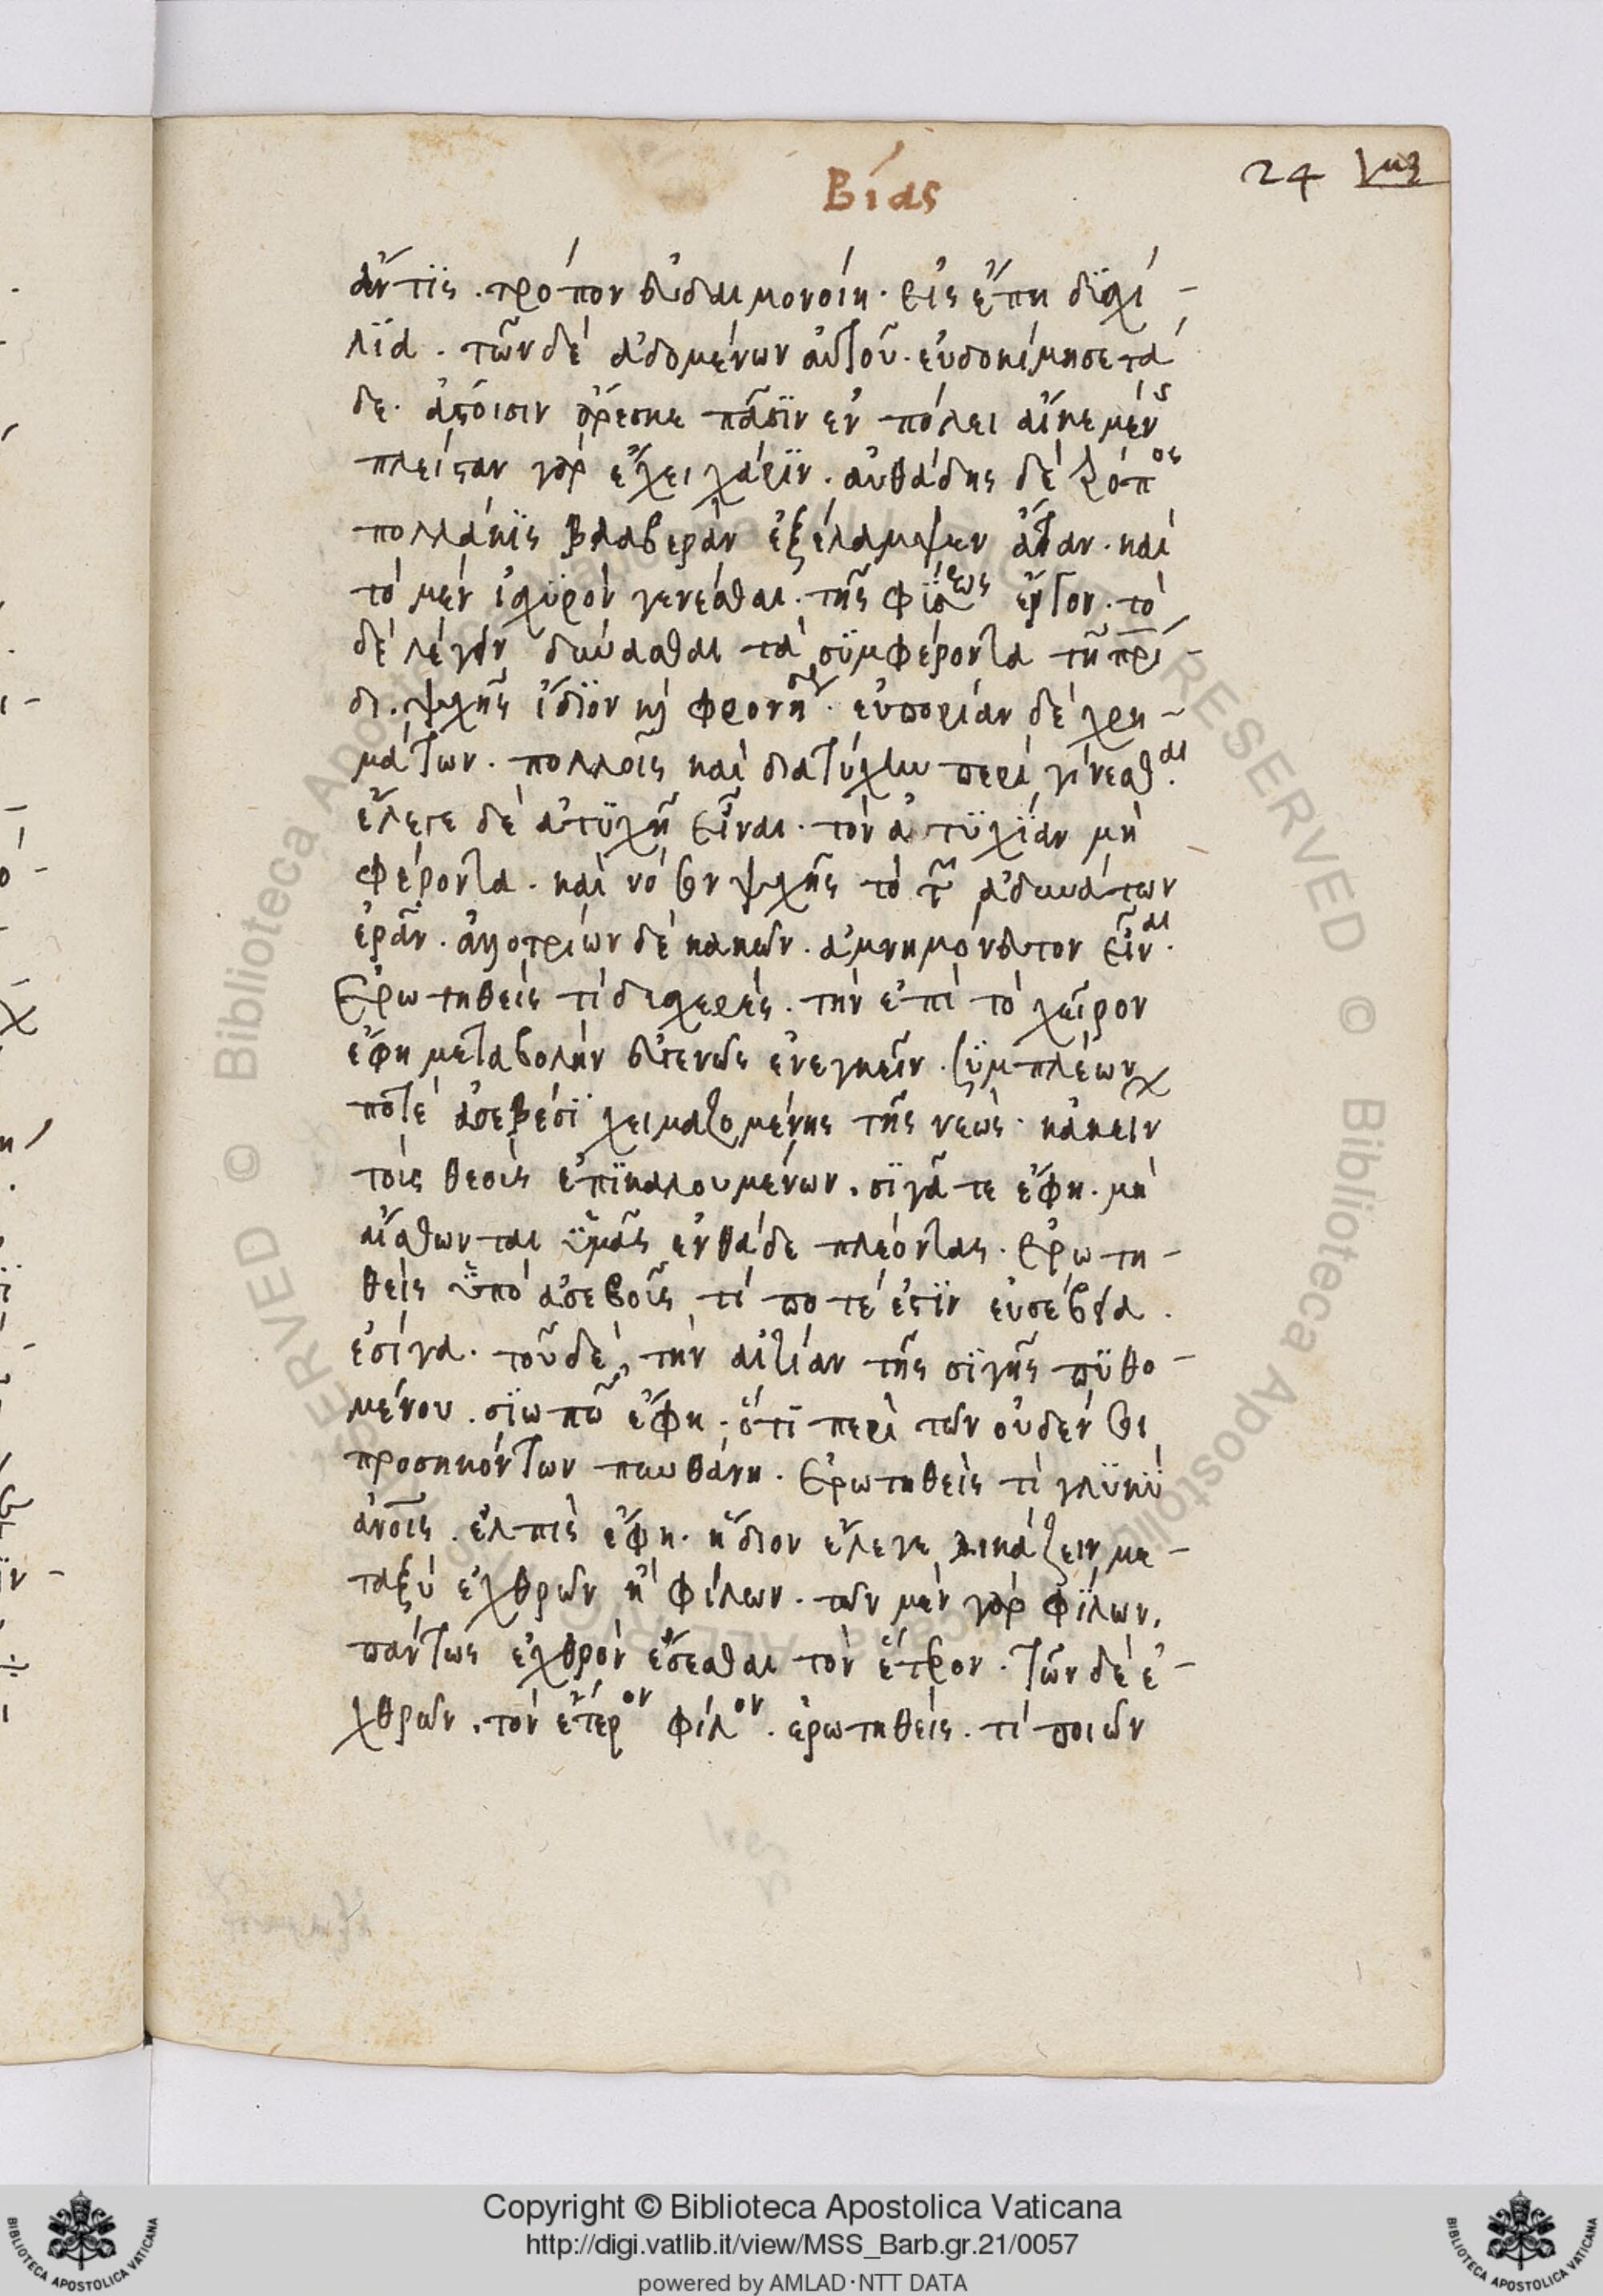 Βίας
24
ἄν τϊς . τρόπον ἐυδαιμονοίη . εἰς ἔπη δϊσχί-
λϊα . τῶν δὲ ἀδομένων αὐτοῦ . εὐδοκίμησε τά
δε . ἀστοῖσιν ἄρεσκε πᾶσϊν ἐν πόλει αἴκε μένς
πλείσταν γὰρ ἔχει χάρϊν . αὐθάδης δὲ τρόπος
πολλάκϊς βλαβερὰν ἐξέλαμψεν ἄταν . καὶ
τὸ μὲν ἰσχϋρὸν γενέσθαι . τῆς φύσεως ἔργον . τὸ
δὲ λέγειν δύνασθαι τὰ σϋμφέροντα τῆ πρί-
δι . ψυχῆς ἴδϊον κὶ φρονή . εὐπορίαν δὲ χρη-
μάτων . πολλοῖς καὶ διὰ τύχην περι γίνεσθαι .
ἔλεγε δὲ ἀτϋχῆ εἶναι . τὸν ἀτϋχΐαν μὴ
φέροντα . καὶ νόσον ψυχῆς τὸ τῶν ἀδυνάτων
ἐρᾶν . ἀλλοτρίων δὲ κακῶν . ἀμνημόνευτον εἶναι .
Ερωτηθεὶς τί δυσχερές . τὴν ἐπὶ τὸ χεῖρον
ἔφη μεταβολὴν εὐγενῶς ἐνεγκεῖν . Σϋμπλέων
ποτὲ ἀσεβέσϊ χειμαζομένης τῆς νεώς . κἀκείν
τοὶς θεοὶς ἐπϊκαλουμένων . σϊγᾶτε ἔφη . μὴ
αἴσθωνται ϋμᾶς ἐνθάδε πλέοντας . Ερωτη-
θεὶς ϋπὸ ἀσεβοῖς τί ποτέ ἐστϊν εὐσέβεια .
ἐσίγα . τοῦ δὲ τὴν αἰτίαν τῆς σϊγῆς πϋθο-
μένου . σϊωπῶ ἔφη . ὅτϊ περὶ τῶν οὐδέν σοι
προσηκόντων πυνθάνη . Ερωτηθεὶς τί γλϋκϋ
ἀνοῖς . ἐλπὶς ἔφη . ἥδιον ἔλεγε δικάζειν με-
ταξὺ ἐχθρῶν ἢ φίλων . τῶν μὲν γὰρ φΐλων .
πάντως ἐχθρὸν ἔσεσθαι τὸν ἕτερον . Τῶν δὲ ἐ-
χθρῶν . τὸν ἕτερον φίλον . ἐρωτηθείς . τί ποιῶν
Copyright © Biblioteca Apostolica Vaticana
http://digi.vatlib.it/view/MSS_Barb.gr.21/0057
powered by AMLAD·NTT DATA